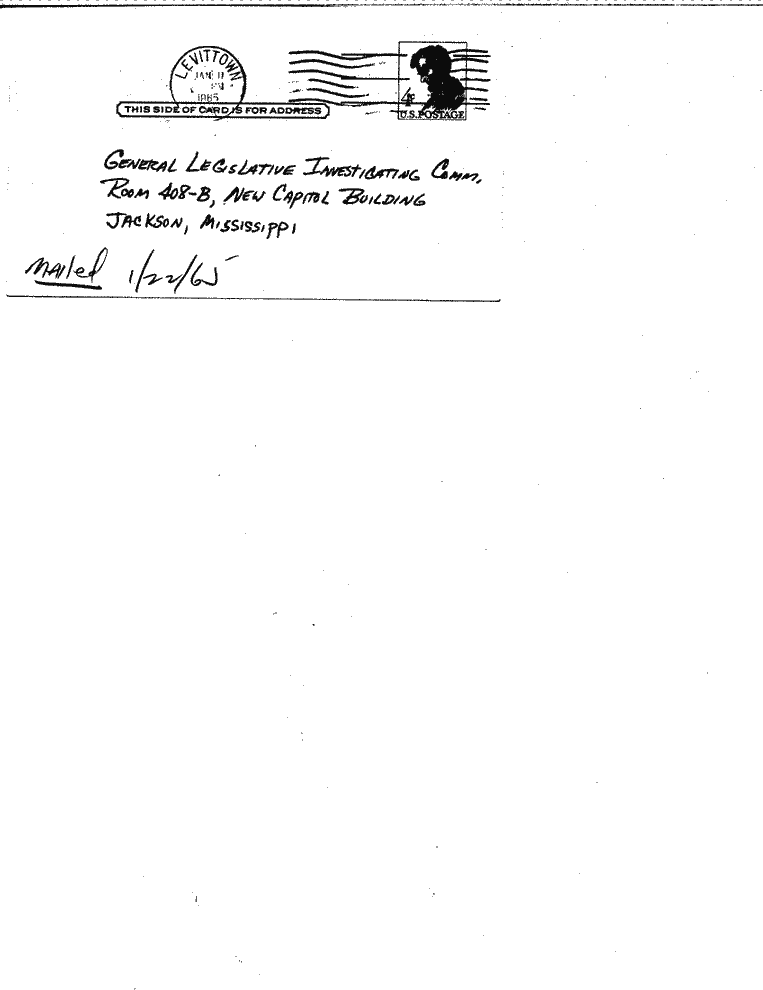 LEVITTOWN
JAN 11
PM
1965
4¢
U.S. POSTAGE
THIS SIDE OF CARD IS FOR ADDRESS
GENERAL LEGISLATIVE INVESTIGATING COMM.
ROOM 408-B, NEW CAPITOL BUILDING
JACKSON, MISSISSIPPI
Mailed 1/22/65